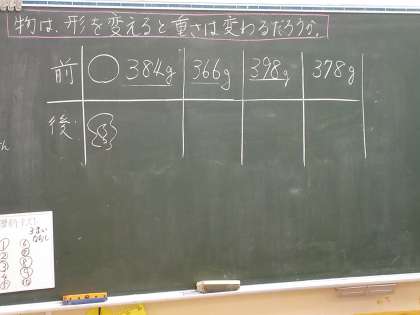 物は、形を変えると重さは変わるだろうか。
前 384g 366g 398g 378g
後